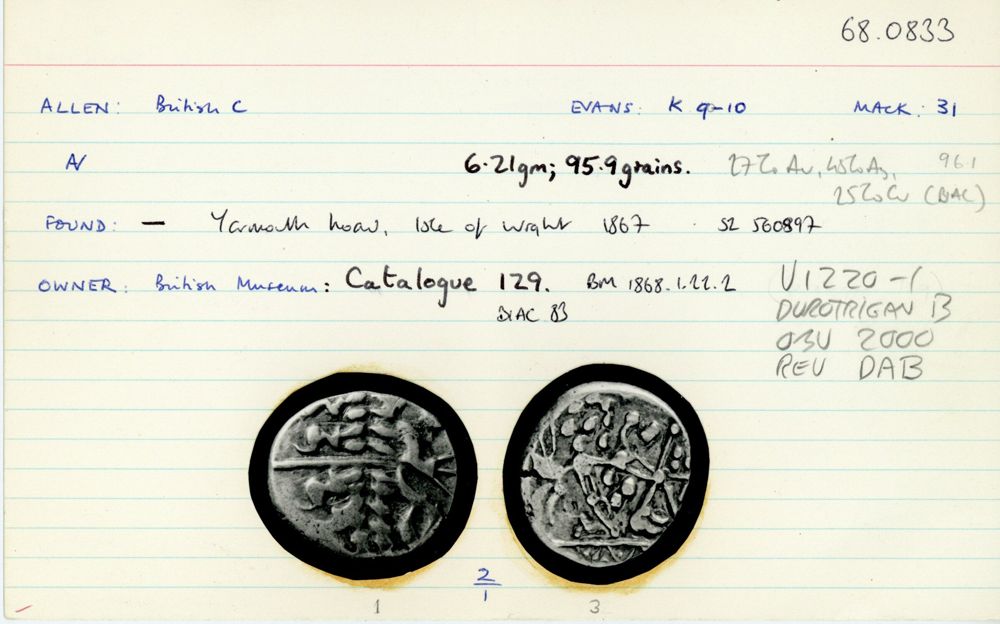 68.0833
ALLEN: British C EVANS: K 9-10 MACK: 31
AV 6.21gm; 95.9grains. 27% Au, 48% Ag, 96.1
25% Cu (DIAC)
FOUND: — Yarmouth hoard, Isle of Wight 1867 . SZ 560897
OWNER: British Museum: Catalogue 129. BM 1868.1.22.2 V1220-1
DIAC 83 DUROTRIGAN B
OBV 2000
REV DAB
2
1
1 3